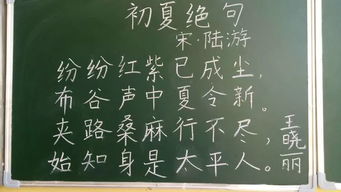 初夏绝句
宋·陆游
纷纷红紫已成尘,
布谷声中夏令新。
夹路桑麻行不尽,
始知身是太平人。
王晓丽